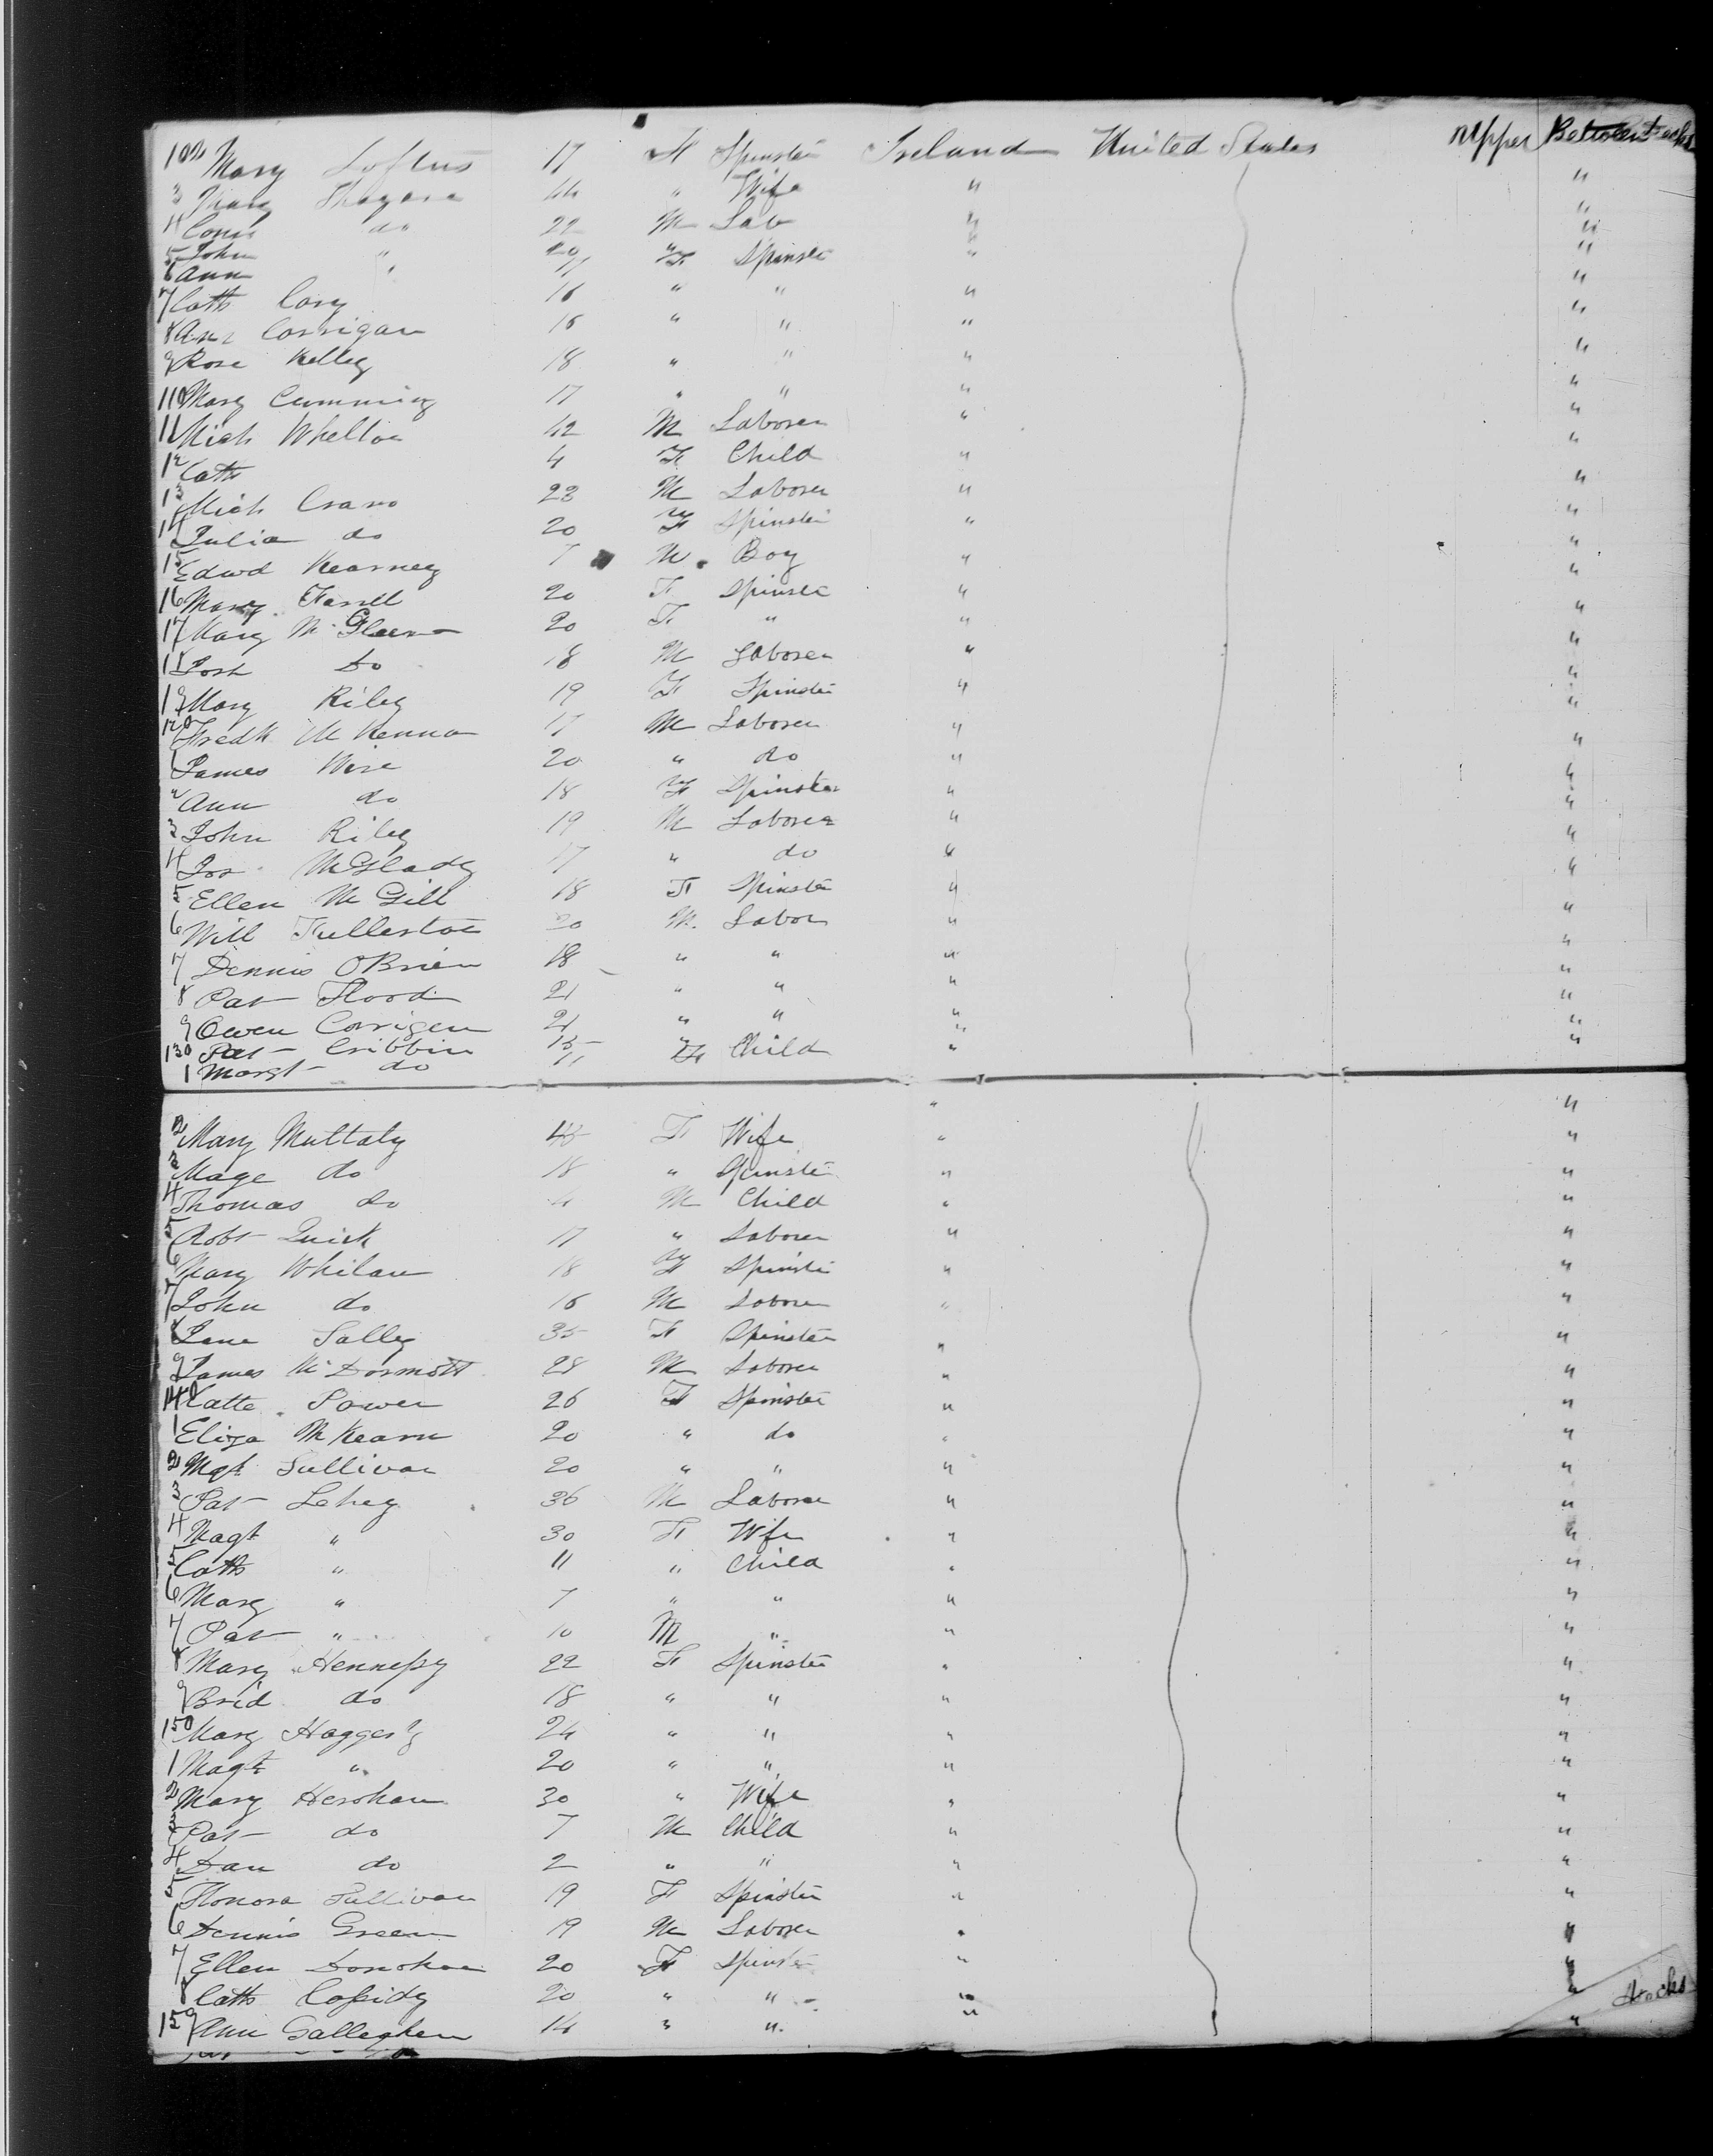 102 Mary Loftus 17 F Spinster Ireland United States Upper Between decks
3 44 " Wife " "
4 do 22 M Lab " "
5 John " 20 " " "
6 Ann " 11 F Spinster " "
7 Cath Cary 16 " " " "
8 Ann Corrigan 16 " " " "
9 Rose Kelley 18 " " " "
110 Mary Cumming 17 " " " "
11 Mich Whelton 42 M Laborer " "
12 Cath 4 F Child " "
13 Mich Crano 23 M Laborer " "
14 Julia do 20 F Spinster " "
15 Edwd Kearney 7 M Boy " "
16 Mary Farrell 20 F Spinster " "
17 Mary 20 F " " "
18 Josh Do 18 M Laborer " "
19 Mary Riley 19 F Spinster " "
120 Fredk McKenna 17 M Laborer " "
1 James Wire 20 " do " "
2 Ann do 18 F Spinster " "
3 John Riley 19 M Laborer " "
4 Jos McGlady 17 " do " "
5 Ellen McGill 18 F Spinster " "
6 Will Fullerton 20 M. Labor " "
7 Dennis OBrien 18 " " " "
8 Pat Flood 21 " " " "
9 Owen Corrigen 21 " " " "
130 Pat Cribbin 13 " " "
1 Margt do 11 F Child " "
2 Mary Multaly 45 F Wife " "
3 Mage do 18 " Spinster " "
4 Thomas do 4 M Child " "
5 Robt Quick 17 " Laborer " "
6 Mary Whilan 18 F Spinster " "
7 John do 16 M Laborer " "
8 Jane Salley 35 F Spinster " "
9 James McDormott 28 M Laborer " "
140 Catte Power 26 F Spinster " "
1 Eliza McKearn 20 " do " "
2 Mgt Sullivan 20 " " " "
3 Pat Lehey 36 M Laborer " "
4 Magt " 30 F Wife " "
5 Cath " 11 " Child " "
6 Mary " 7 " " " "
7 Pat " 10 M " " "
8 Mary Hennessy 22 F Spinster " "
9 Brid do 18 " " " "
150 Mary Haggerty 24 " " " "
1 Magt " 20 " " " "
2 Mary Herohan 30 " Wife " "
3 Pat do 7 M Child " "
4 Dan do 2 " " " "
5 Honora Sullivan 19 F Spinster " "
6 Dennis Green 19 M Laborer " "
7 Ellen Donohoe 20 F Spinster " "
8 Cath Cassidy 20 " " " "
159 Ann Gallegher 14 " " " "
decks